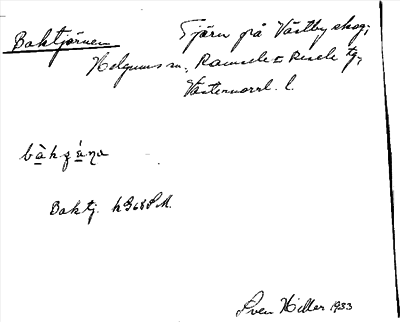 Baktjärnen Tjärn på Västby skog;
Helgums sn, Ramsele o Resele tg,
Västernorrl. l.
Baktj.
Sven Hiller 1933